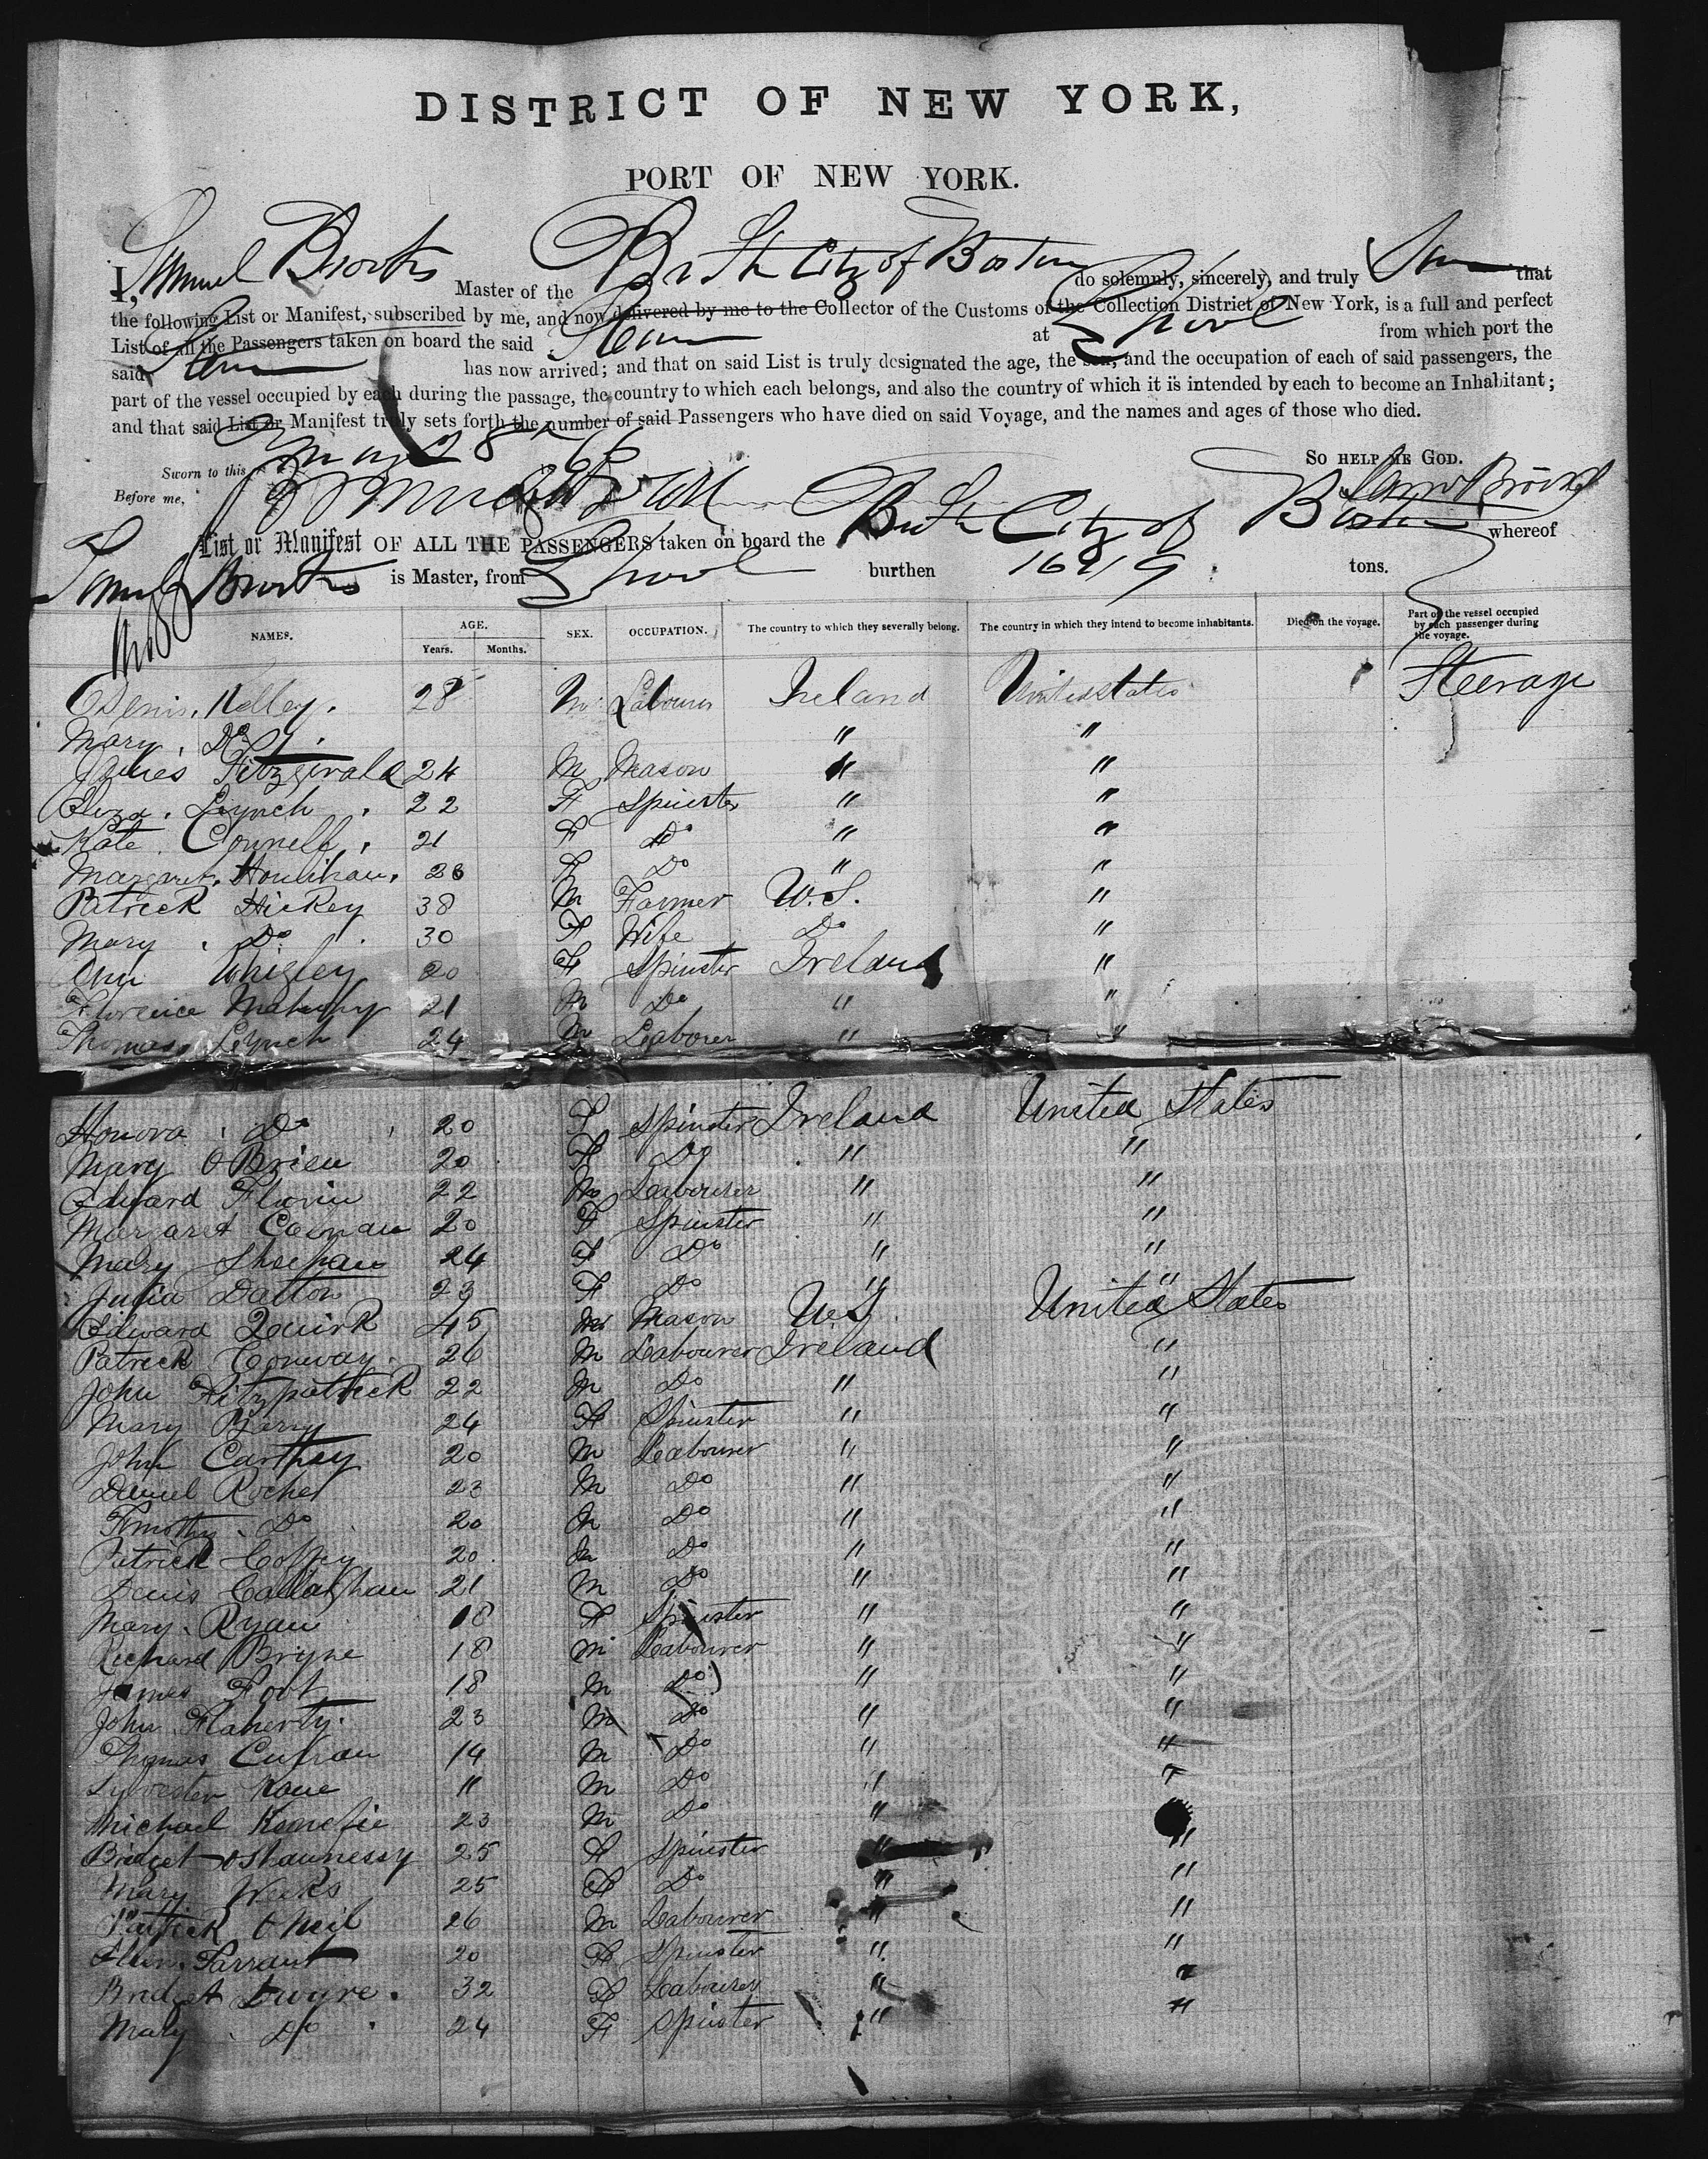 DISTRICT OF NEW YORK,
PORT OF NEW YORK.
I, Samuel Brooks Master of the Br Str City of Boston do solemnly, sincerely, and truly that
the following List or Manifest, subscribed by me, and now delivered by me to the Collector of the Customs of the Collection District of New York, is a full and perfect
List of all the Passengers taken on board the said at L'pool from which port the
said has now arrived; and that on said List is truly designated the age, the sex, and the occupation of each of said passengers, the
part of the vessel occupied by each during the passage, the country to which each belongs, and also the country of which it is intended by each to become an Inhabitant;
and that said List or Manifest truly sets forth the number of said Passengers who have died on said Voyage, and the names and ages of those who died.
Sworn to this May 28 66 SO HELP ME GOD.
Before me, Saml Brooks
List or Manifest OF ALL THE PASSENGERS taken on board the City of Boston whereof
Samuel Brooks is Master, from L'pool burthen tons.
NAMES. AGE. Years. Months. SEX. OCCUPATION. The country to which they severally belong. The country in which they intend to become inhabitants. Died on the voyage. Part of the vessel occupied by each passenger during the voyage.
Denis Kelley 28 M Labourer Ireland United States Steerage
Mary Do " "
James Fitzgerald 24 M Mason " "
Eliza Lynch 22 F Spinster " "
Kate Connell 21 F Do " "
Margaret Houlihan 26 F Do " "
Patrick Hickey 38 M Farmer U.S. "
Mary Do 30 F Wife Do "
Ann Whigley 20 F Spinster Ireland "
Florence Mahony 21 M Do " "
Thomas Lynch 24 M Laborer " "
Honora Do 20 F Spinster Ireland United States
Mary O'Brien 20 F Do " "
Edward 22 M Labourer " "
Margaret 20 F Spinster " "
Mary Sheehan 24 F Do " "
Julia Dalton 23 F Do " "
Edward Quirk 45 M Mason U.S. United States
Patrick Conway 26 M Labourer Ireland "
John Fitzpatrick 22 M Do " "
Mary Barry 24 F Spinster " "
John Carthey 20 M Labourer " "
Daniel Roche 23 M Do " "
Timothy Do 20 M Do " "
Patrick Coffey 20 M Do " "
Denis Callaghan 21 M Do " "
Mary Ryan 18 F Spinster " "
Richard Bryne 18 M Labourer " "
James Foot 18 M Do " "
John Flaherty 23 M Do " "
Thomas 14 M Do " "
Sylvester Kane 11 M Do " "
Michael 23 M Do " "
Bridget O'Shaunessy 25 F Spinster " "
Mary Weeks 25 F Do " "
Patrick O'Neil 26 M Labourer " "
Ellen Farrant 20 F Spinster " "
Bridget Dwyre 32 F Labourer " "
Mary Do 24 F Spinster " "